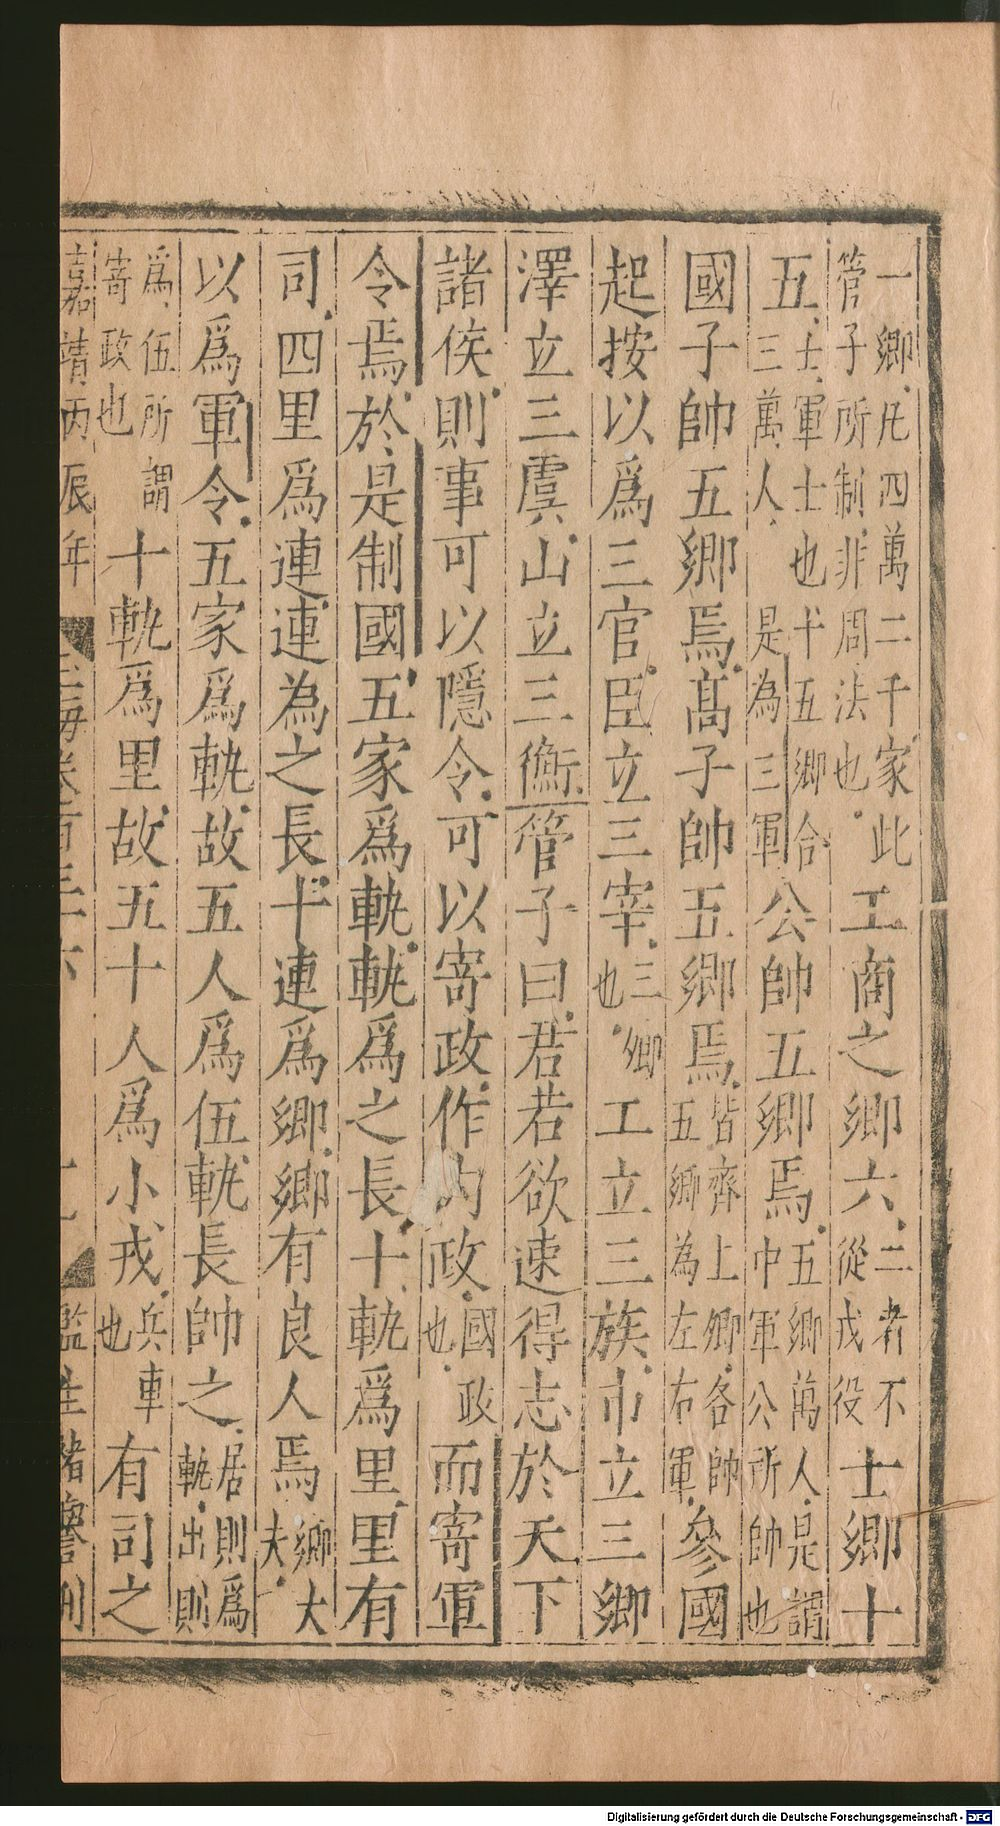 一卿凡四萬二千家此管子所制非周法也工商之卿六二者不從戎役士卿十
五士軍士也十五卿合三萬人是為三軍公帥五卿焉五卿萬人是謂中軍公所帥也
國子帥五卿焉高子帥五卿焉皆齊上卿各帥五卿為左右軍參國
起按以爲三官臣立三宰三卿也工立三族市立三鄉
澤立三虞山立三衡管子曰君若欲速得志於天下
諸侯則事可以隱令可以寄政作內政國政也而寄軍
令焉於是制國五家爲軌軌爲之長十軌爲里里有
司四里爲連連為之長十連爲鄉鄉有良人焉鄉大夫
以爲軍令五家爲軌故五人爲伍軌長帥之居則爲軌出則
爲伍所謂寄政也十軌爲里故五十人爲小戎兵車也有司之
嘉靖丙辰年 玉海卷百三十六 監生諸譽刊
Digitalisierung gefördert durch die Deutsche Forschungsgemeinschaft - DFG